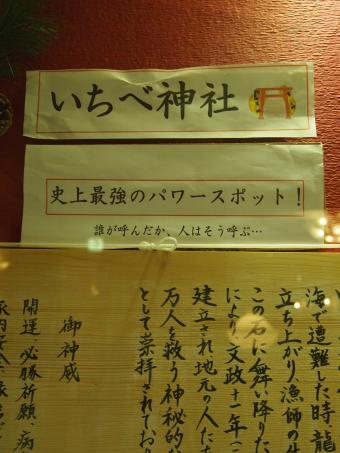 いちべ神社
史上最強のパワースポット!
誰が呼んだか、人はそう呼ぶ…
海で遭難した時、龍
立ち上がり、漁師の
この石に舞い降りた
により、文政十一年(
建立され、地元の人た
万人を救う神秘的な
として崇拝されており
御神威
開運、必勝祈願、病